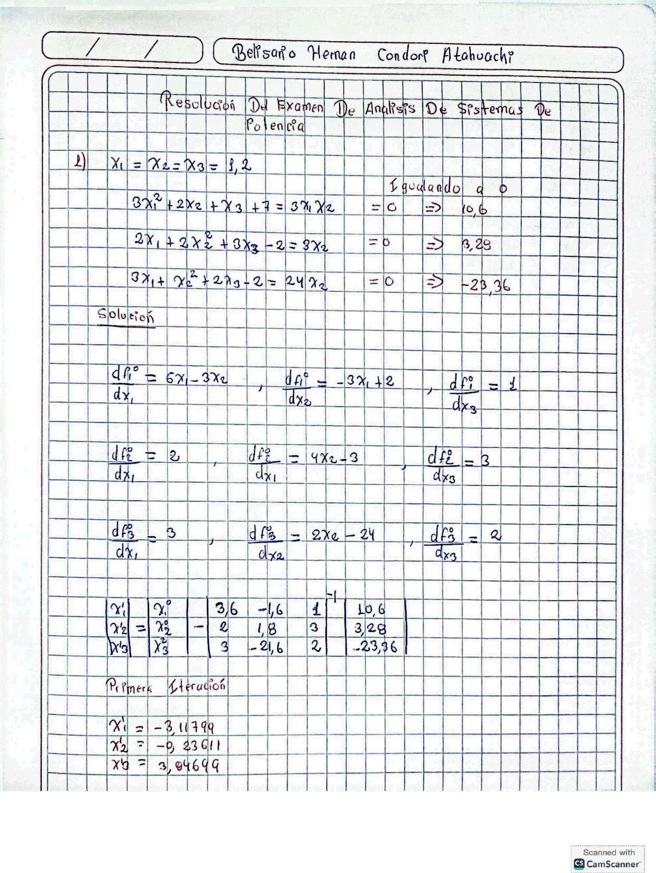 / /
Belisario Hernan Condori Atahuachi
Resolución Del Examen De Analisis De Sistemas De
Potencia
1) x₁ = x₂ = x₃ = 1,2
Igualando a 0
3x₁² + 2x₂ + x₃ + 7 = 3x₁x₂ = 0 ⇒ 10,6
2x₁ + 2x₂² + 3x₃ - 2 = 3x₂ = 0 ⇒ 3,28
3x₁ + x₂² + 2x₃ - 2 = 24x₂ = 0 ⇒ -23,36
Solución
df₁⁰/dx₁ = 6x₁ - 3x₂ , df₁⁰/dx₂ = -3x₁ + 2 , df₁⁰/dx₃ = 1
df₂⁰/dx₁ = 2 , df₂⁰/dx₁ = 4x₂ - 3 , df₂⁰/dx₃ = 3
df₃⁰/dx₁ = 3 , df₃⁰/dx₂ = 2x₂ - 24 , df₃⁰/dx₃ = 2
|x₁¹| |x₁⁰| |3,6 -1,6 1|⁻¹ |10,6|
|x₂¹| = |x₂⁰| - |2 1,8 3| |3,28|
|x₃¹| |x₃²| |3 -21,6 2| |-23,36|
Primera Iteración
x₁¹ = -3,11799
x₂¹ = -0,23611
x₃¹ = 3,84699
Scanned with
CS CamScanner